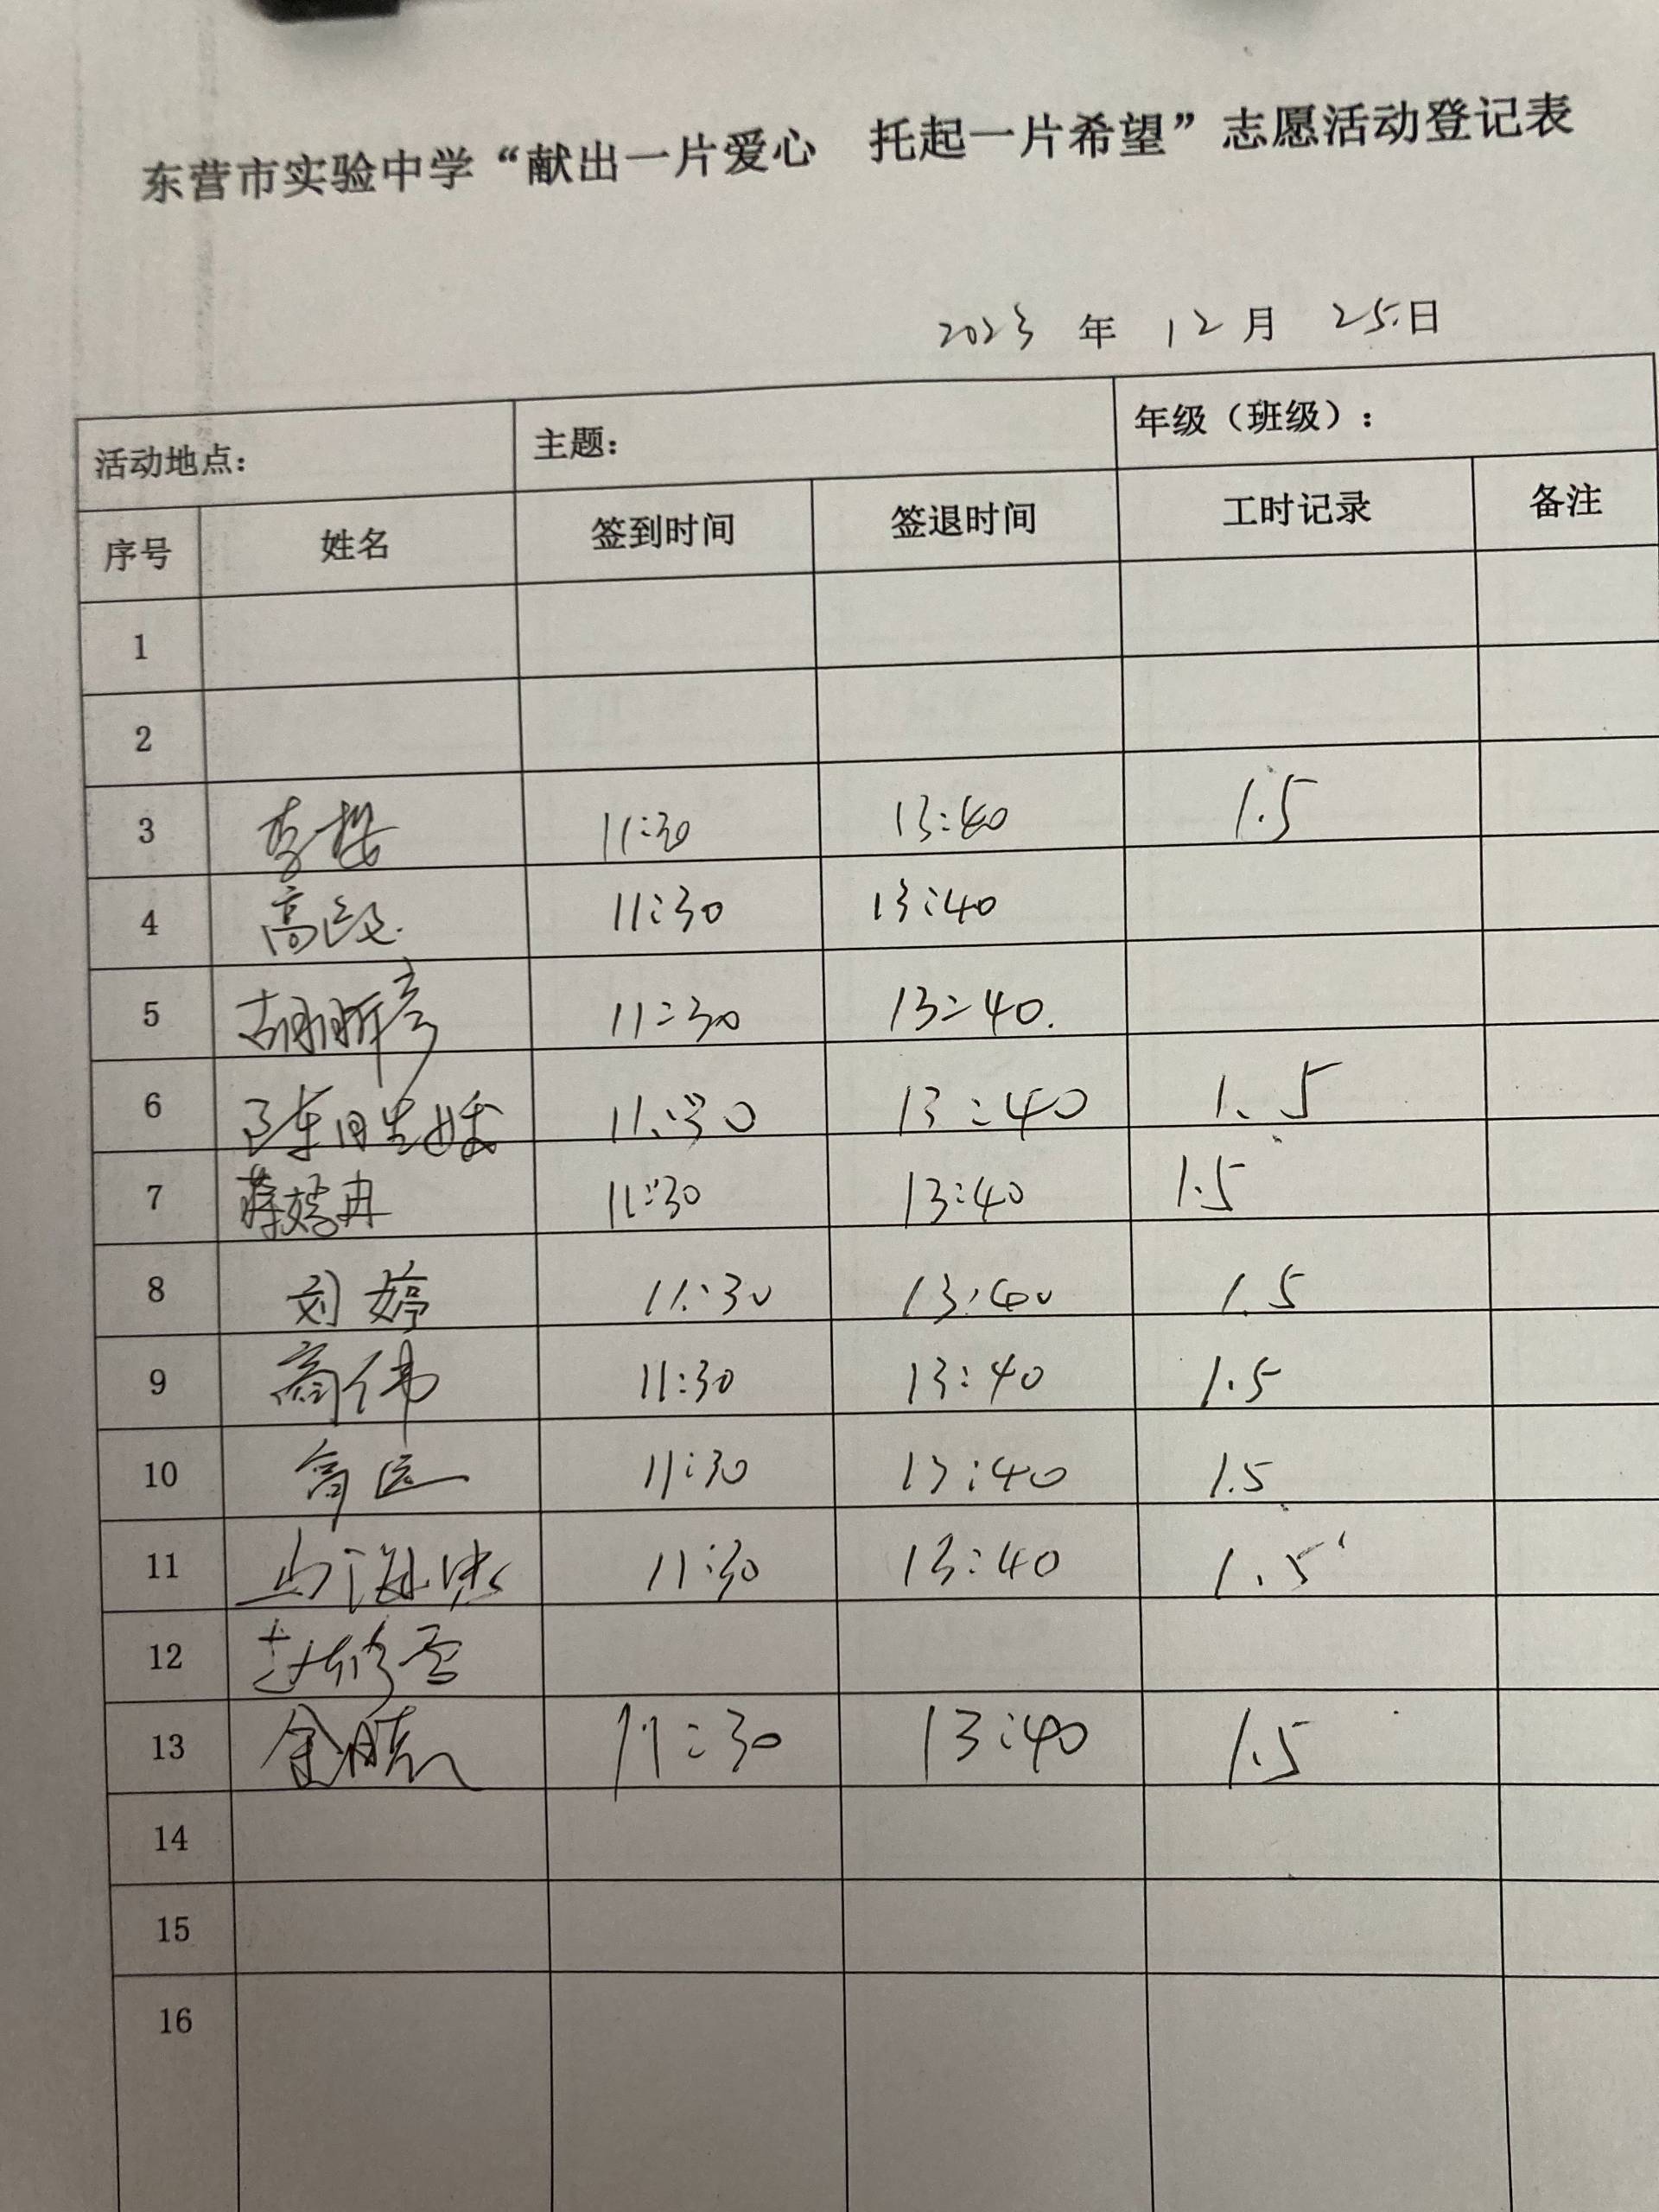 东营市实验中学“献出一片爱心 托起一片希望”志愿活动登记表
2023 年 12 月 25日
活动地点: 主题: 年级（班级）:
序号 姓名 签到时间 签退时间 工时记录 备注
1
2
3 11:30 13:40 1.5
4 11:30 13:40
5 11:30 13:40
6 11:30 13:40 1.5
7 11:30 13:40 1.5
8 刘婷 11:30 13:40 1.5
9 高伟 11:30 13:40 1.5
10 高 11:30 13:40 1.5
11 11:30 13:40 1.5
12
13 11:30 13:40 1.5
14
15
16